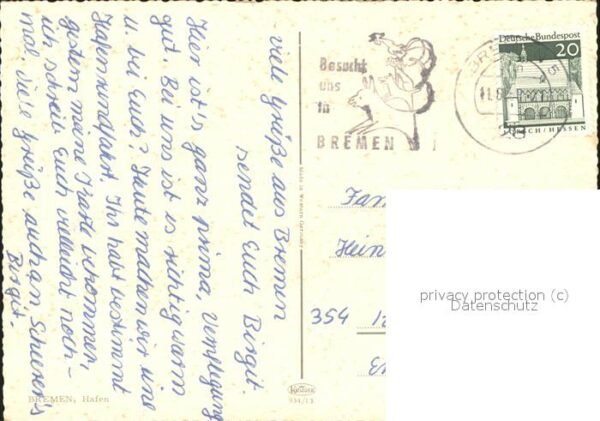 viele Grüße aus Bremen
sendet Euch Birgit.
Hier ist's ganz prima, Verpflegung
gut. Bei uns ist es richtig warm
u. bei Euch? Heute machen wir eine
Hafenrundfahrt, Ihr habt bestimmt
gestern meine Karte bekommen,
ich schreib Euch vielleicht noch-
mal. Viele Grüße auch an
Birgit.
BREMEN, Hafen
Made in Western Germany
Krüger
934/13
Besucht
uns
in
BREMEN
Deutsche Bundespost
20
LORSCH/HESSEN
Fam
Hein
354
privacy protection (c)
Datenschutz